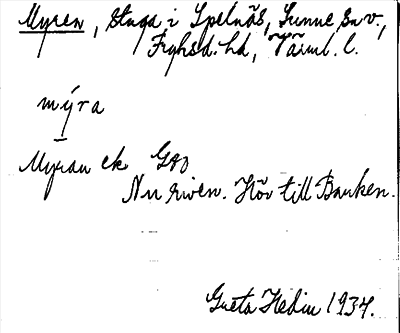 Myren, stuga i Spelnäs, Sunne sn v.,
Fryksd. hd, Värml. l.
mýra
Myran ek G90
Nu riven. Hör till Banken.
Greta Hedin 1934.